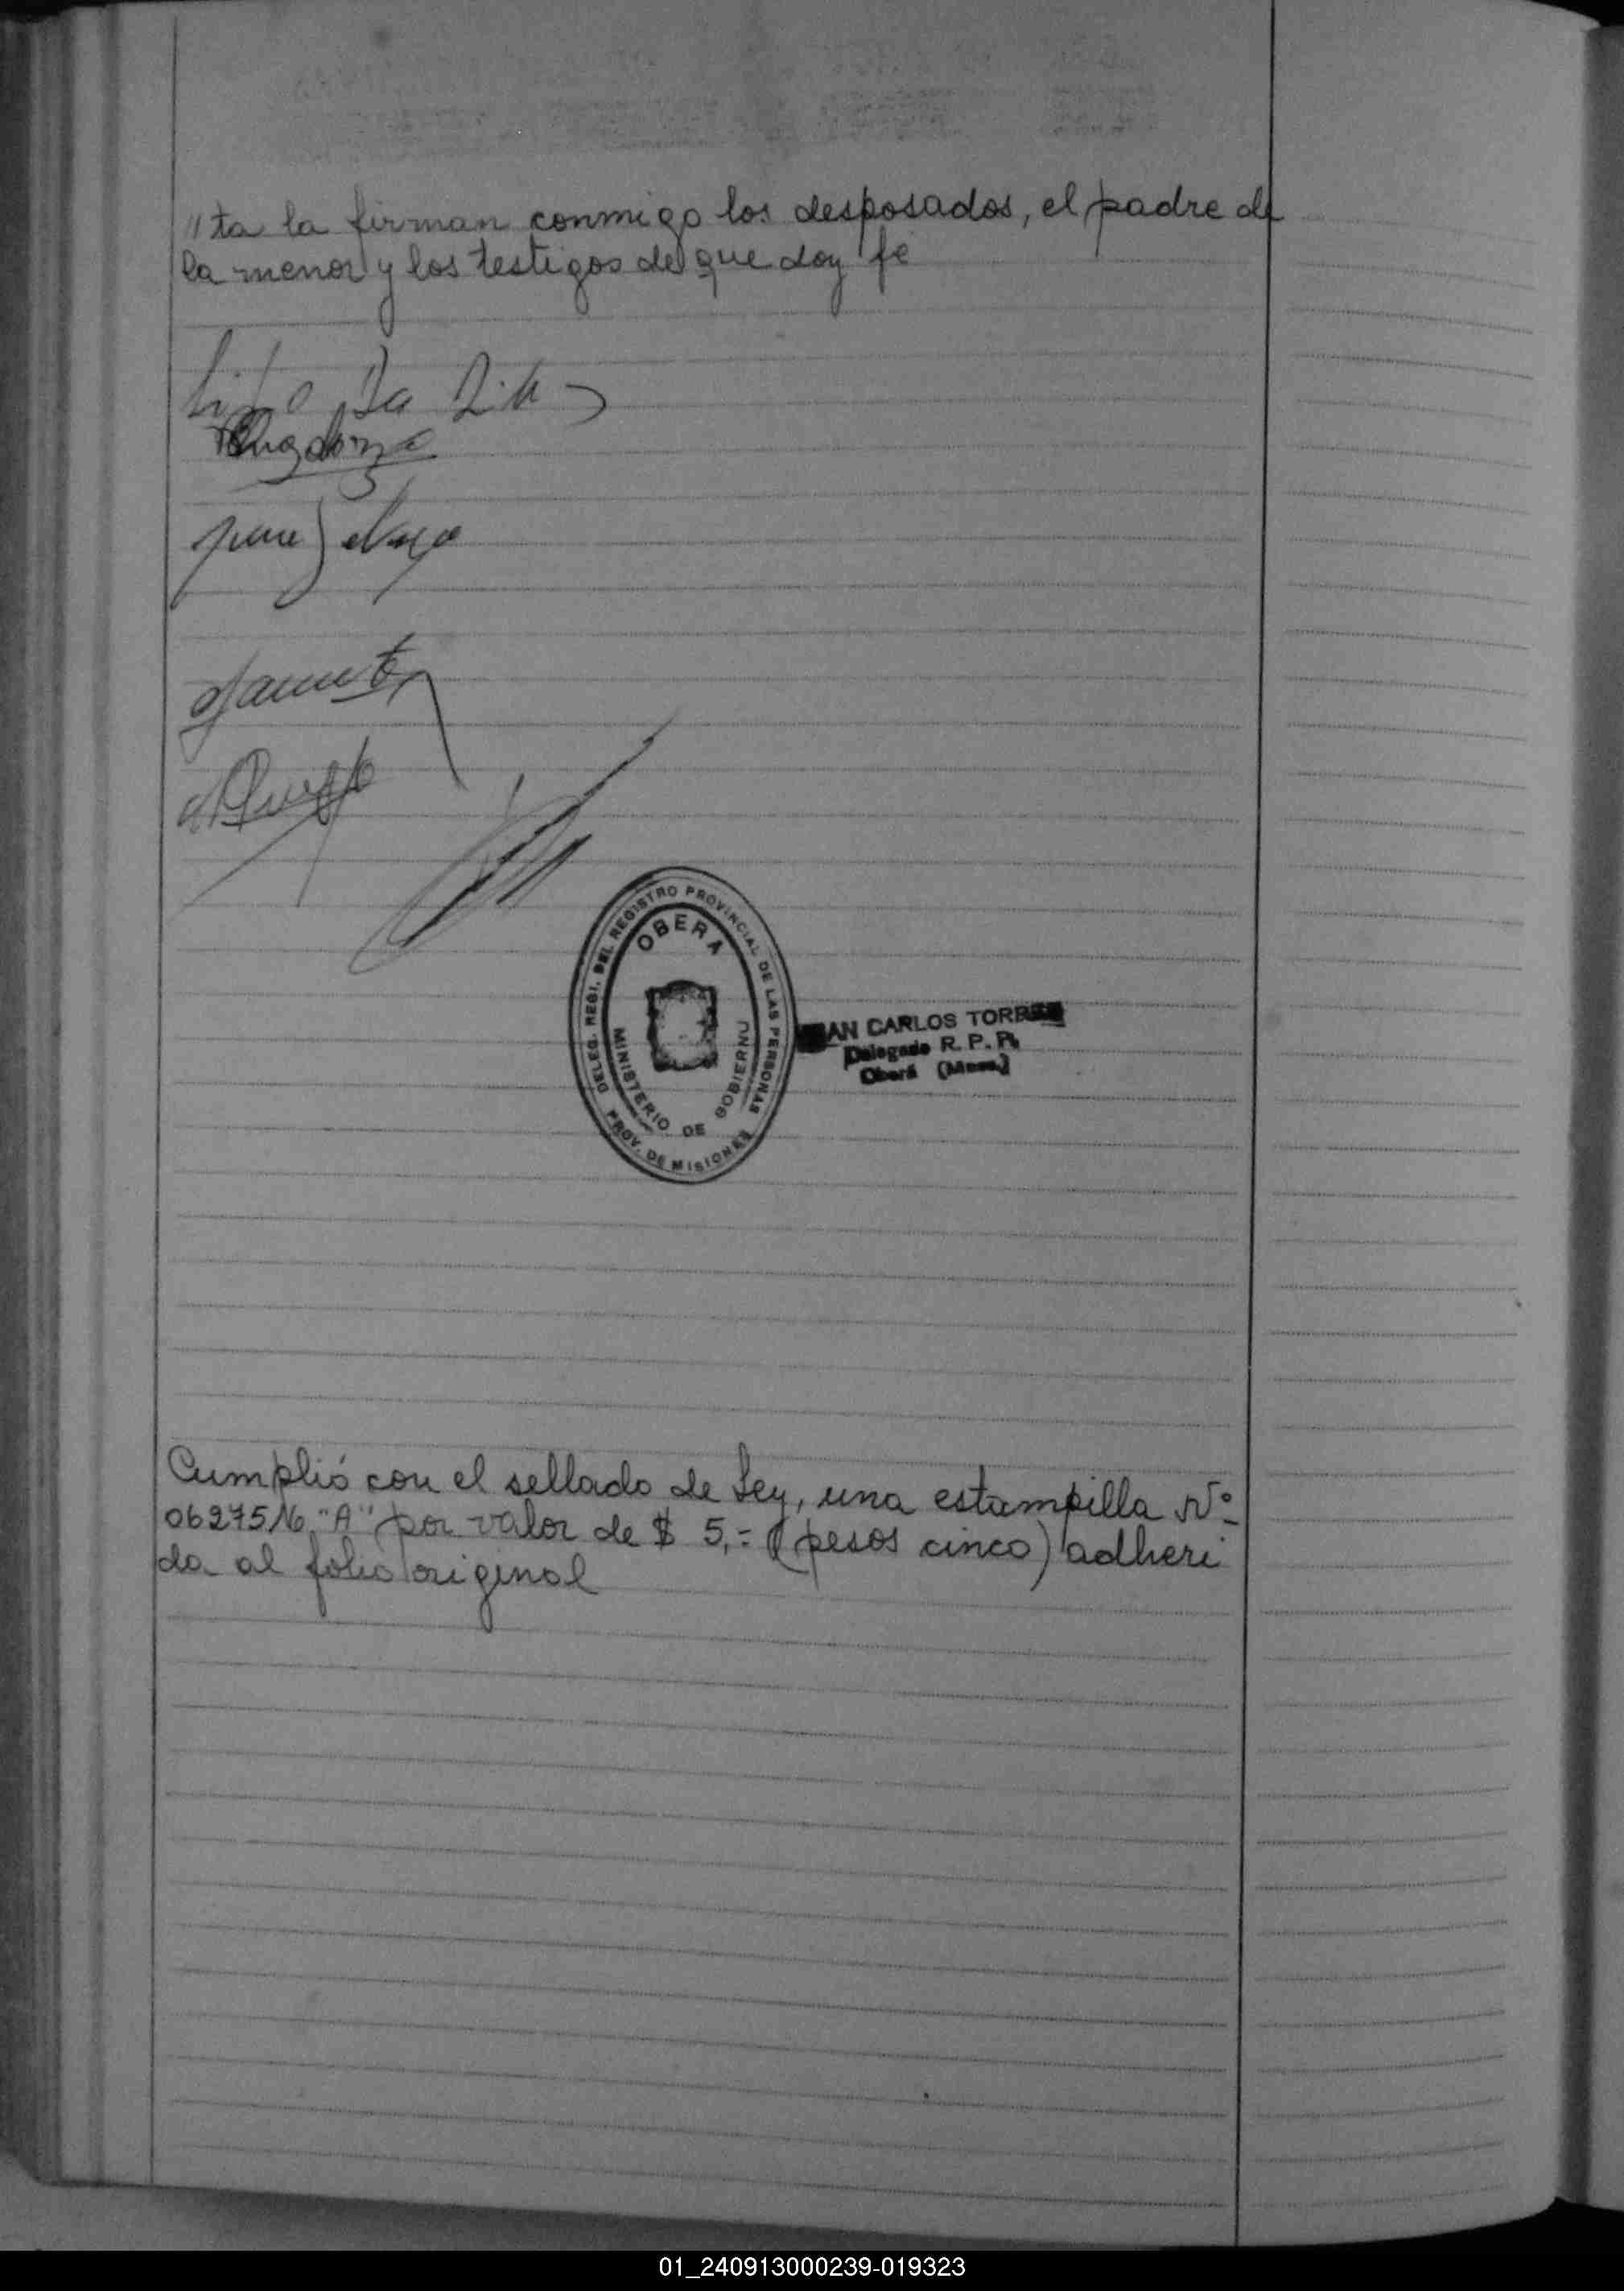 "ta la firman conmigo los desposados, el padre de
la menor y los testigos de que doy fé
Da
DELEG. REGI. DEL REGISTRO PROVINCIAL DE LAS PERSONAS
OBERA
MINISTERIO DE GOBIERNO
PROV. DE MISIONES
AN CARLOS TORRES
Delegado R. P. P.
Oberá (Mnes.)
Cumplió con el sellado de Ley, una estampilla Nº
0627516 "A" por valor de $ 5,= (pesos cinco) adheri
da al folio original
01_240913000239-019323